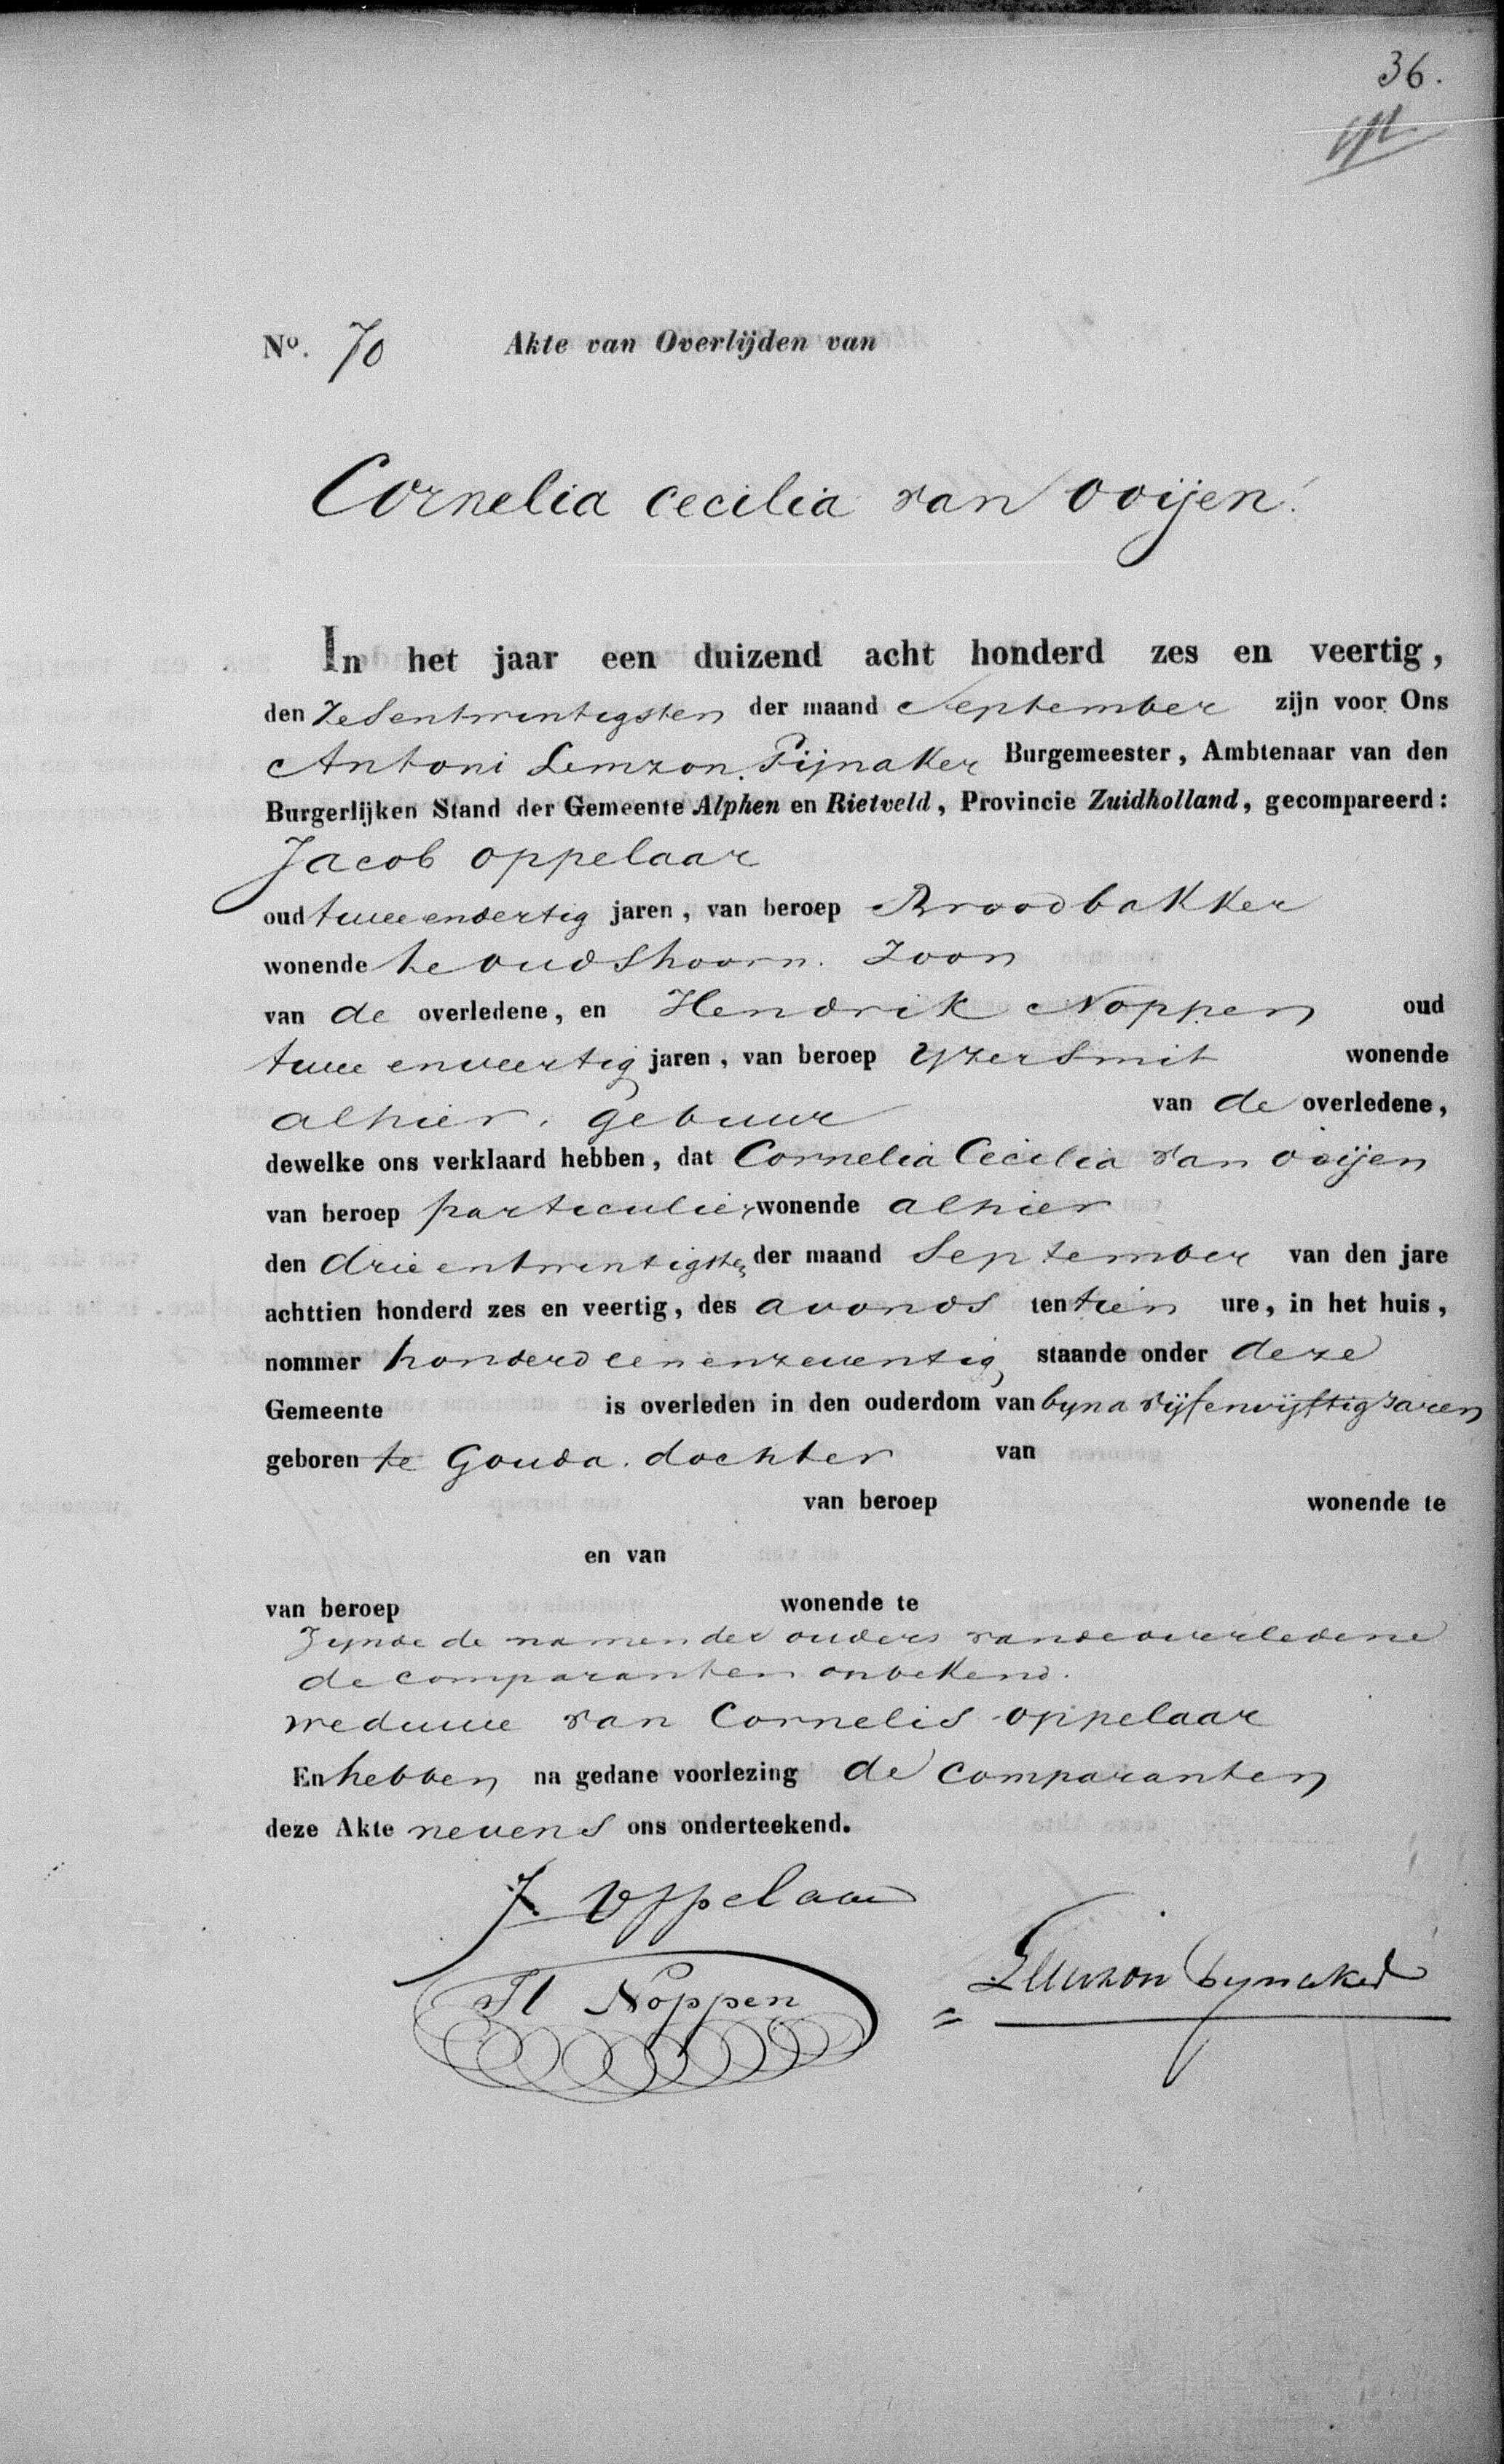 36.
No. 70 Akte van Overlijden van
Cornelia Cecilia van Ooijen.
In het jaar een duizend acht honderd zes en veertig,
den Zesentwintigsten der maand September zijn voor Ons
Antoni Lemzon Pijnaker Burgemeester, Ambtenaar van den
Burgerlijken Stand der Gemeente Alphen en Rietveld, Provincie Zuidholland, gecompareerd:
Jacob Oppelaar
oud twee endertig jaren, van beroep Broodbakker
wonende te Oudshoorn. Zoon
van de overledene, en Hendrik Noppen oud
twee enveertig jaren, van beroep Yzersmit wonende
alhier, gebuur van de overledene,
dewelke ons verklaard hebben, dat Cornelia Cecilia van Ooijen
van beroep particulier wonende alhier
den drieentwintigsten der maand September van den jare
achttien honderd zes en veertig, des avonds ten tien ure, in het huis,
nommer honderd eenenzeventig staande onder deze
Gemeente is overleden in den ouderdom van byna vijfenvijftig Jaren
geboren te Gouda. dochter van
van beroep wonende te
en van
van beroep wonende te
Zynde de namen der ouders van de overledene
de comparanten onbekend.
weduwe van Cornelis Oppelaar
En hebben na gedane voorlezing de Comparanten
deze Akte nevens ons onderteekend.
J. Oppelaar
H Noppen
Lemzon Pynaker